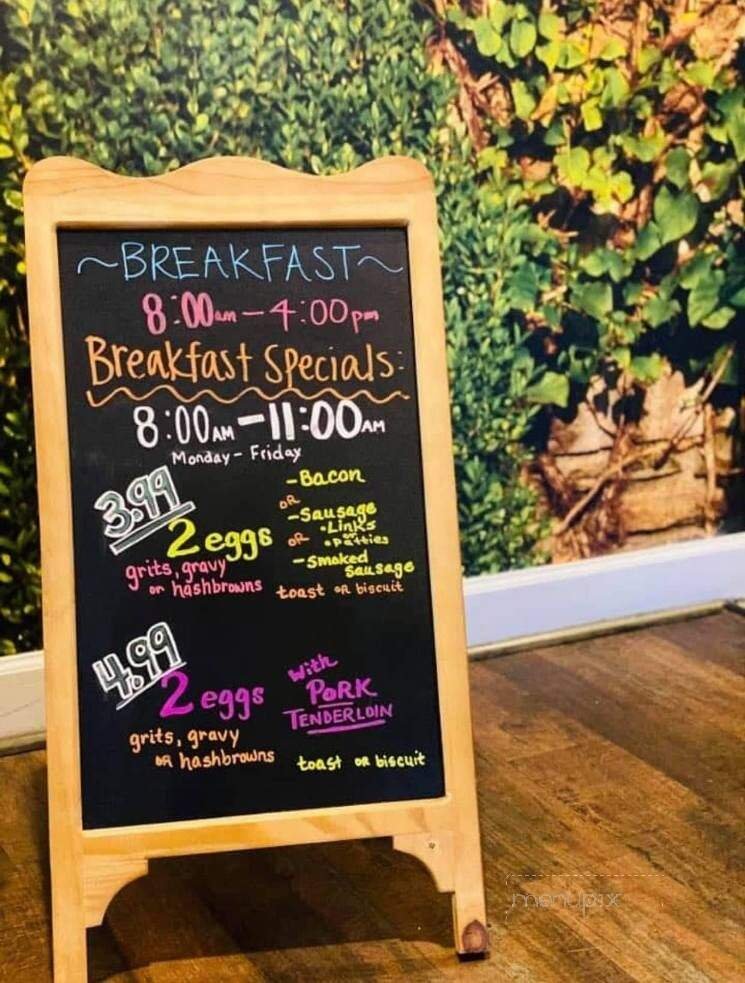 ~BREAKFAST~
8:00am - 4:00pm
Breakfast Specials:
8:00AM - 11:00AM
Monday - Friday
3.99
2 eggs
grits, gravy
or hashbrowns
- Bacon
OR
- Sausage
• Links
OR • patties
- Smoked
Sausage
toast OR biscuit
4.99
2 eggs
grits, gravy
OR hashbrowns
with
PORK
TENDERLOIN
toast OR biscuit
menupix